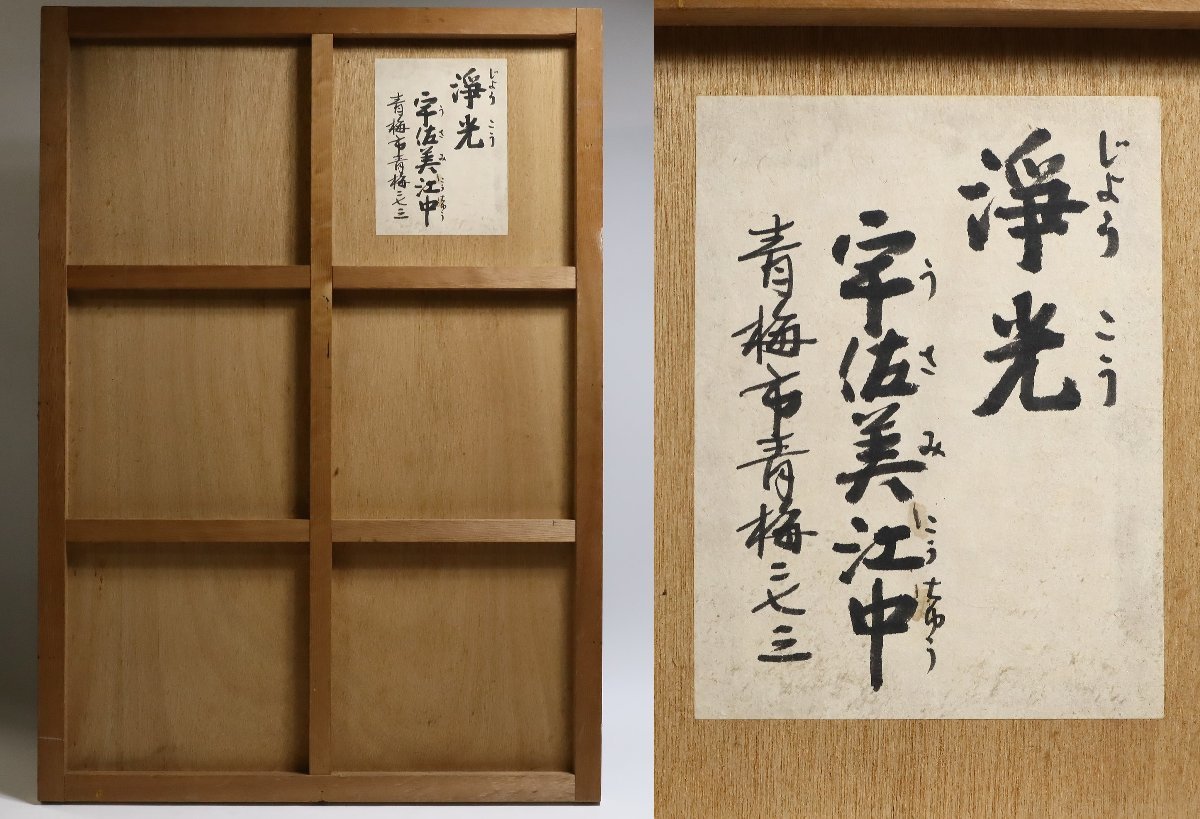 淨光
じようこう
宇佐美江中
うさみこうちゆう
青梅市青梅二七三
淨光
じようこう
宇佐美江中
うさみこうちゆう
青梅市青梅二七三